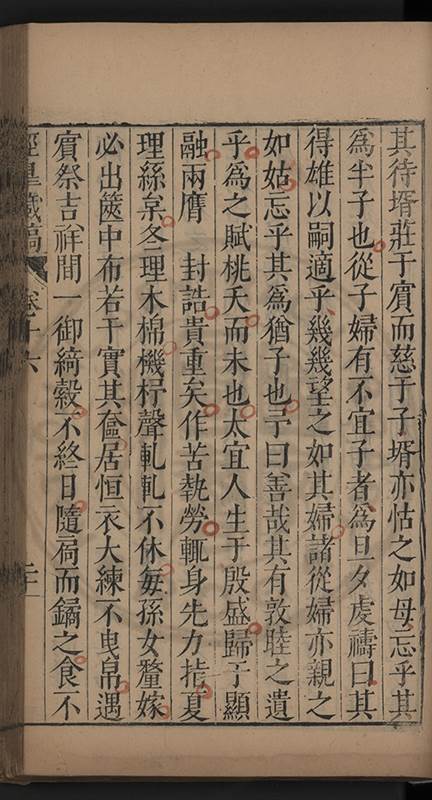 其待壻莊于賔而慈于子壻亦怙之如母忘乎其
為半子也從子婦有不宜子者為旦夕虔禱曰其
得雄以嗣適乎幾幾望之如其婦諸從婦亦親之
如姑忘乎其為猶子也予曰善哉其有敦睦之遺
乎為之賦桃夭而未也太宜人生于殷盛歸于顯
融兩膺　封誥貴重矣作苦執勞輒身先力揩夏
理絲枲冬理木棉機杼聲軋軋不休每孫女釐嫁
必出篋中布若干實其奩居恒衣大練不曳帛遇
賔祭吉祥間一御縞縠不終日隨扃而鐍之食不
經皐藏稿　卷十六